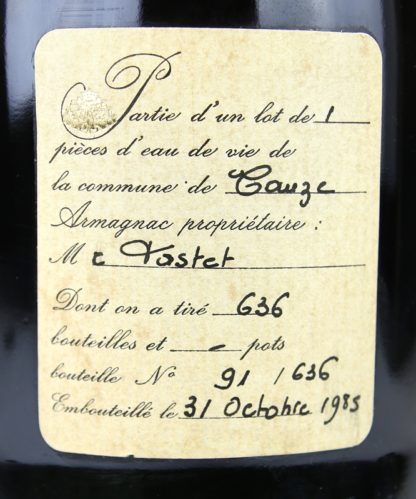 Partie d'un lot de 1
pièces d'eau de vie de
la commune de Cauze
Armagnac propriétaire :
M r Tastet
Dont on a tiré 636
bouteilles et - pots
bouteille Nº 91 / 636
Embouteillé le 31 Octobre 1985